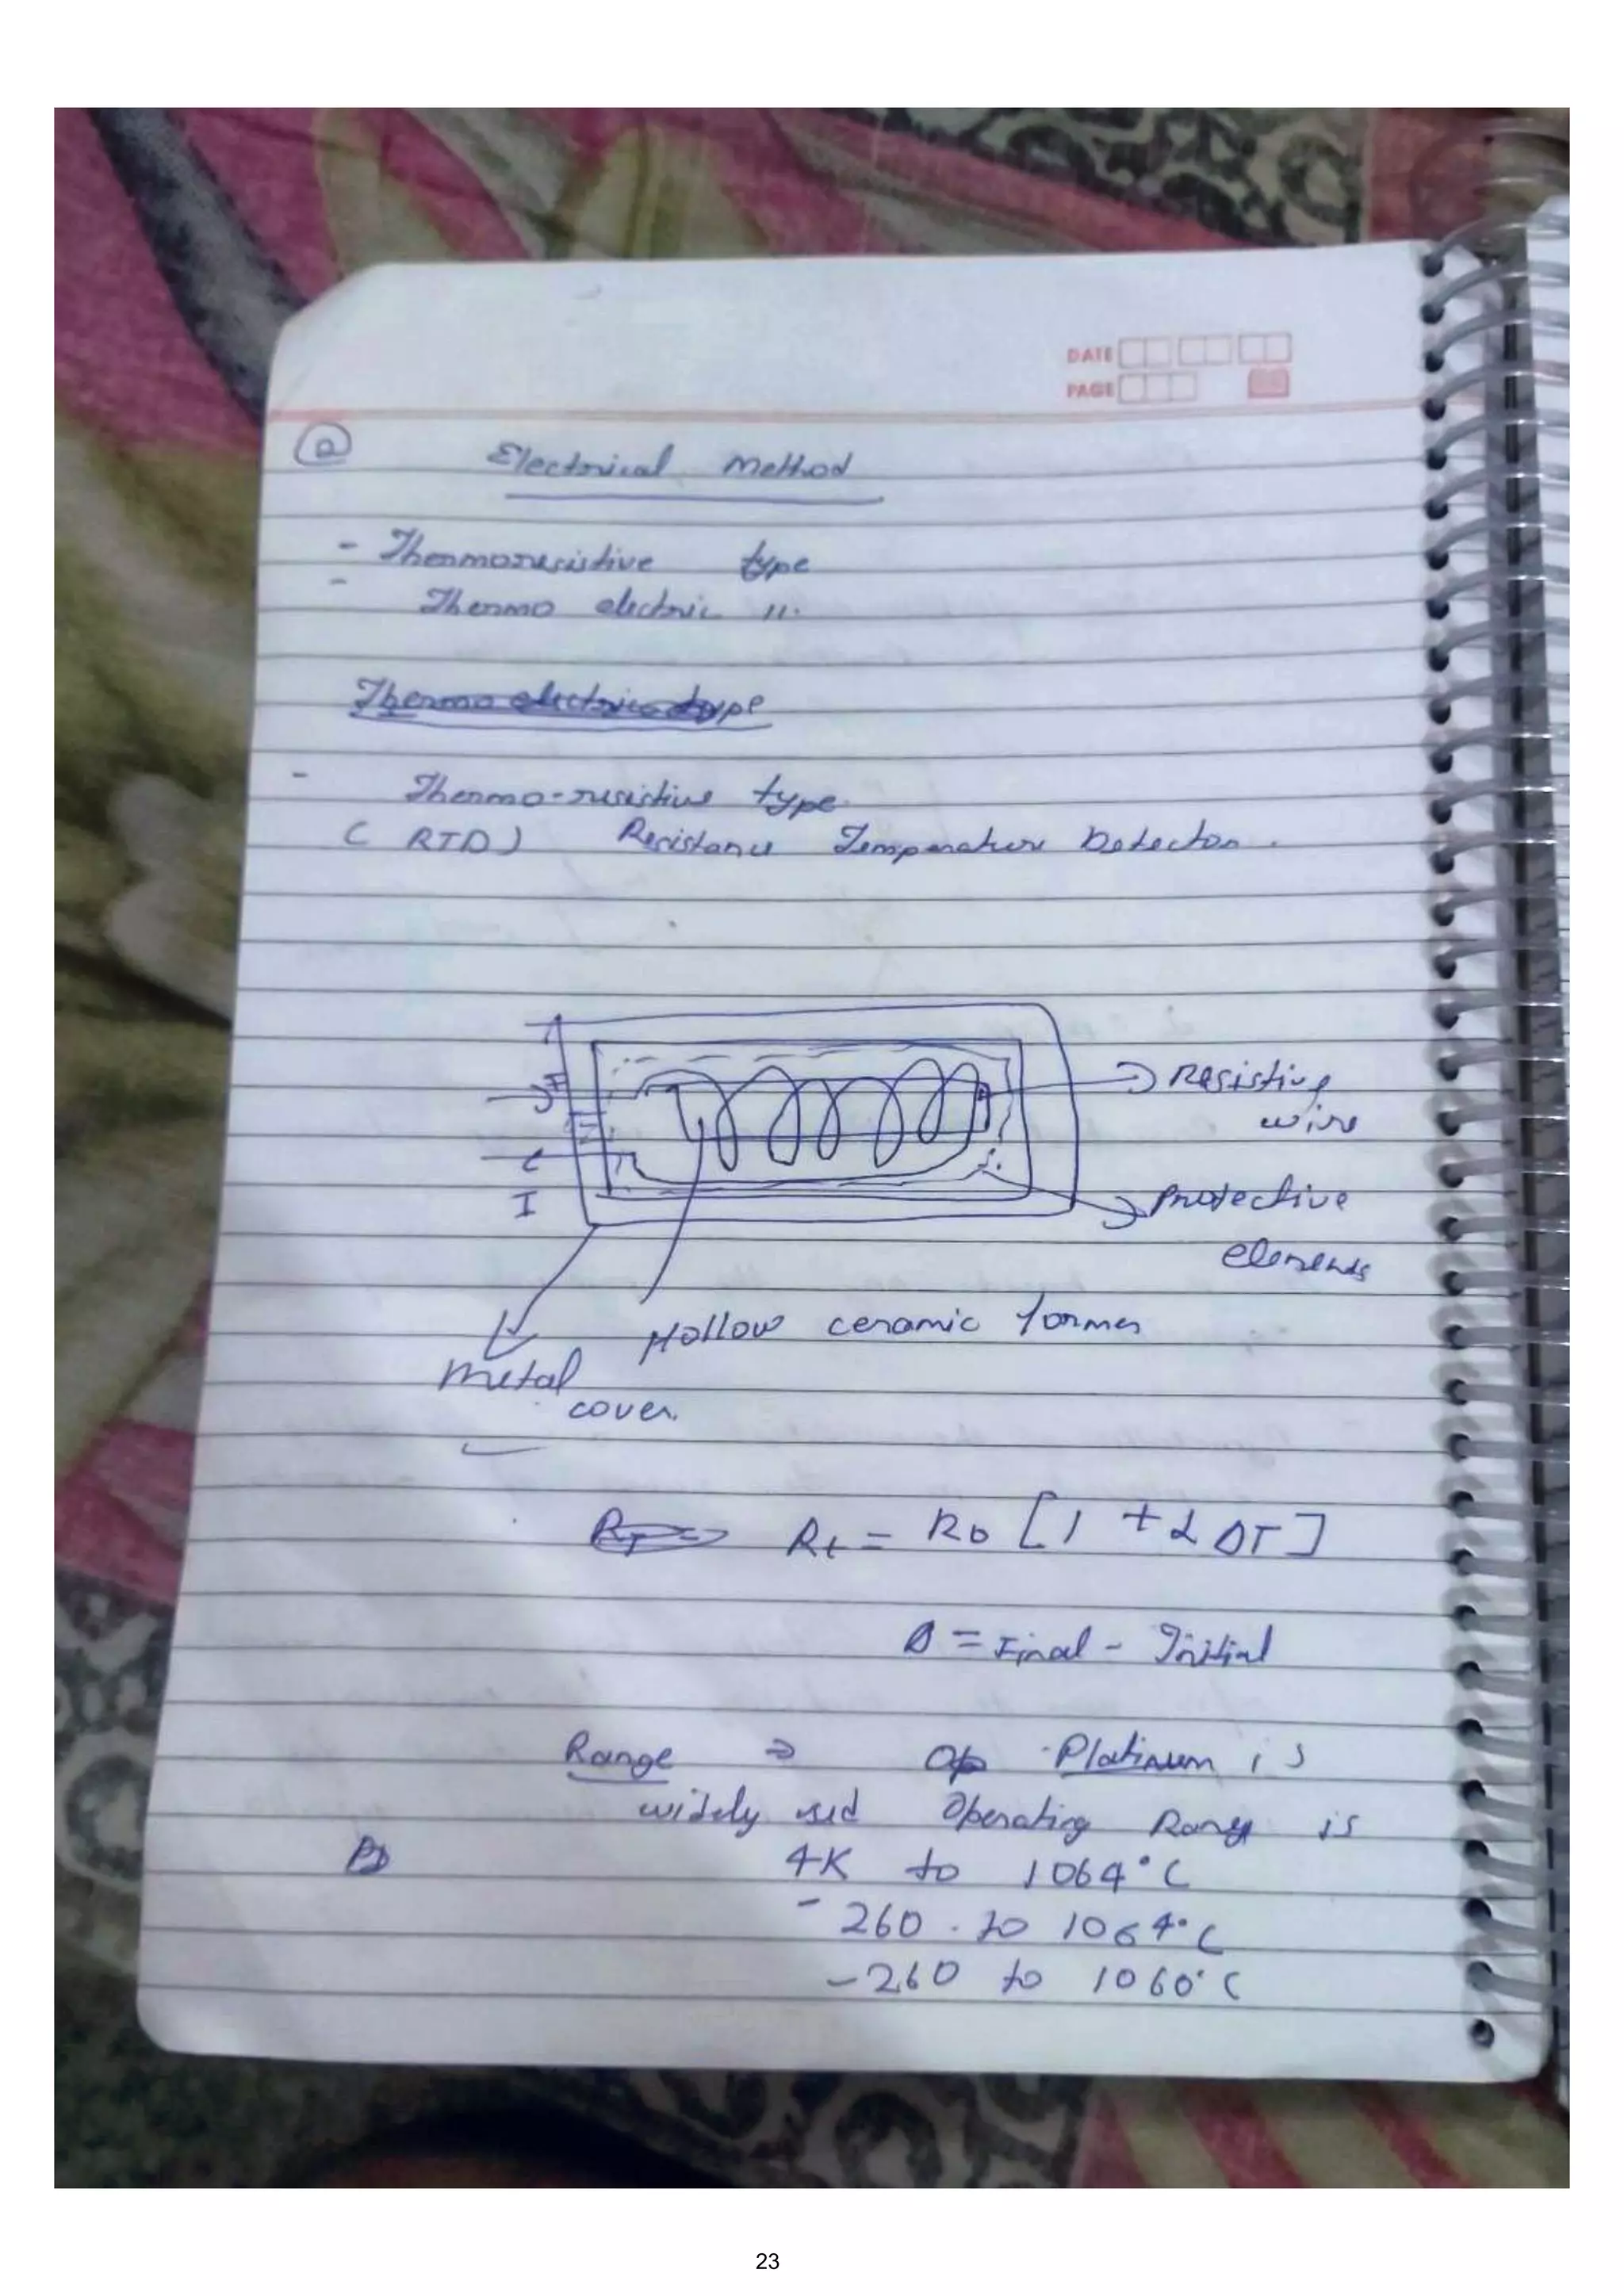 DATE
PAGE
a Electrical Method
- Thermoresistive type
- Thermo electric 11.
Thermo electric type
- Thermo-resistive type.
( RTD) Resistance Temperature Detector.
I
Resistive
wire
I
Protective
elements
Hollow ceramic former
Metal
cover.
RT= Rt = Ro [1 + α ΔT]
Δ = Final - Initial
Range ⇒ Op Platinum is
widely used Operating Range is
4K to 1064°C
- 260 . to 1064°C
-260 to 1060°C
23